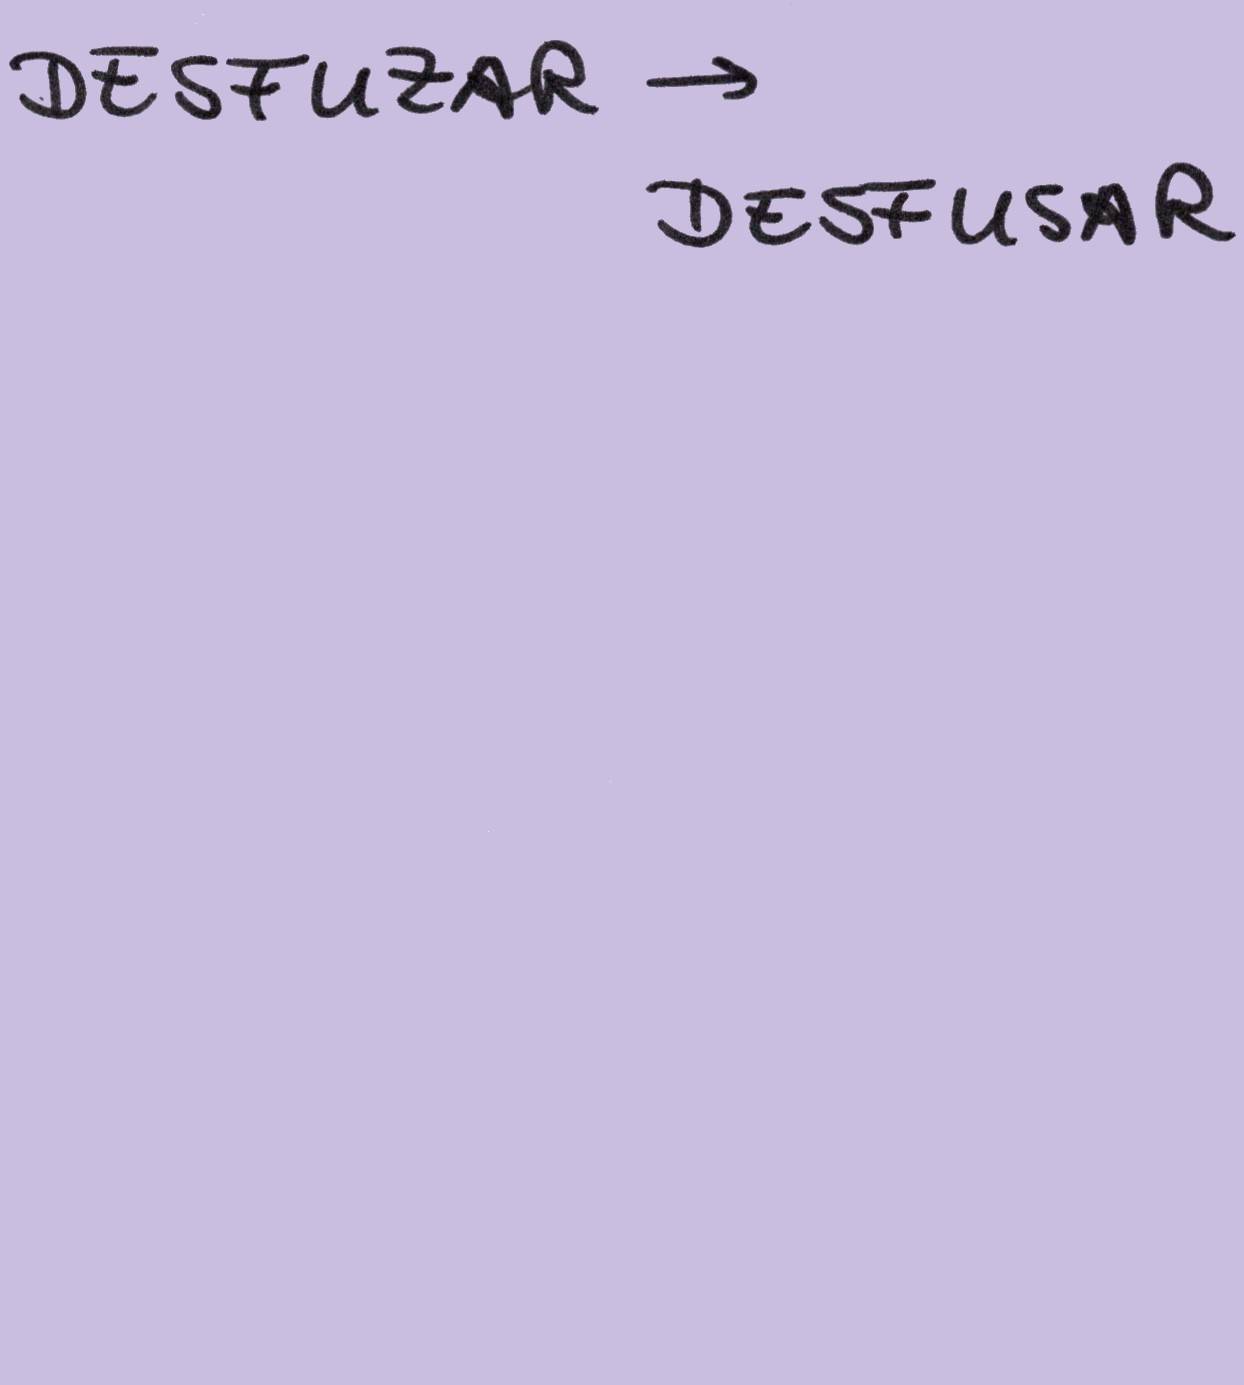 DESFUZAR →
DESFUSAR